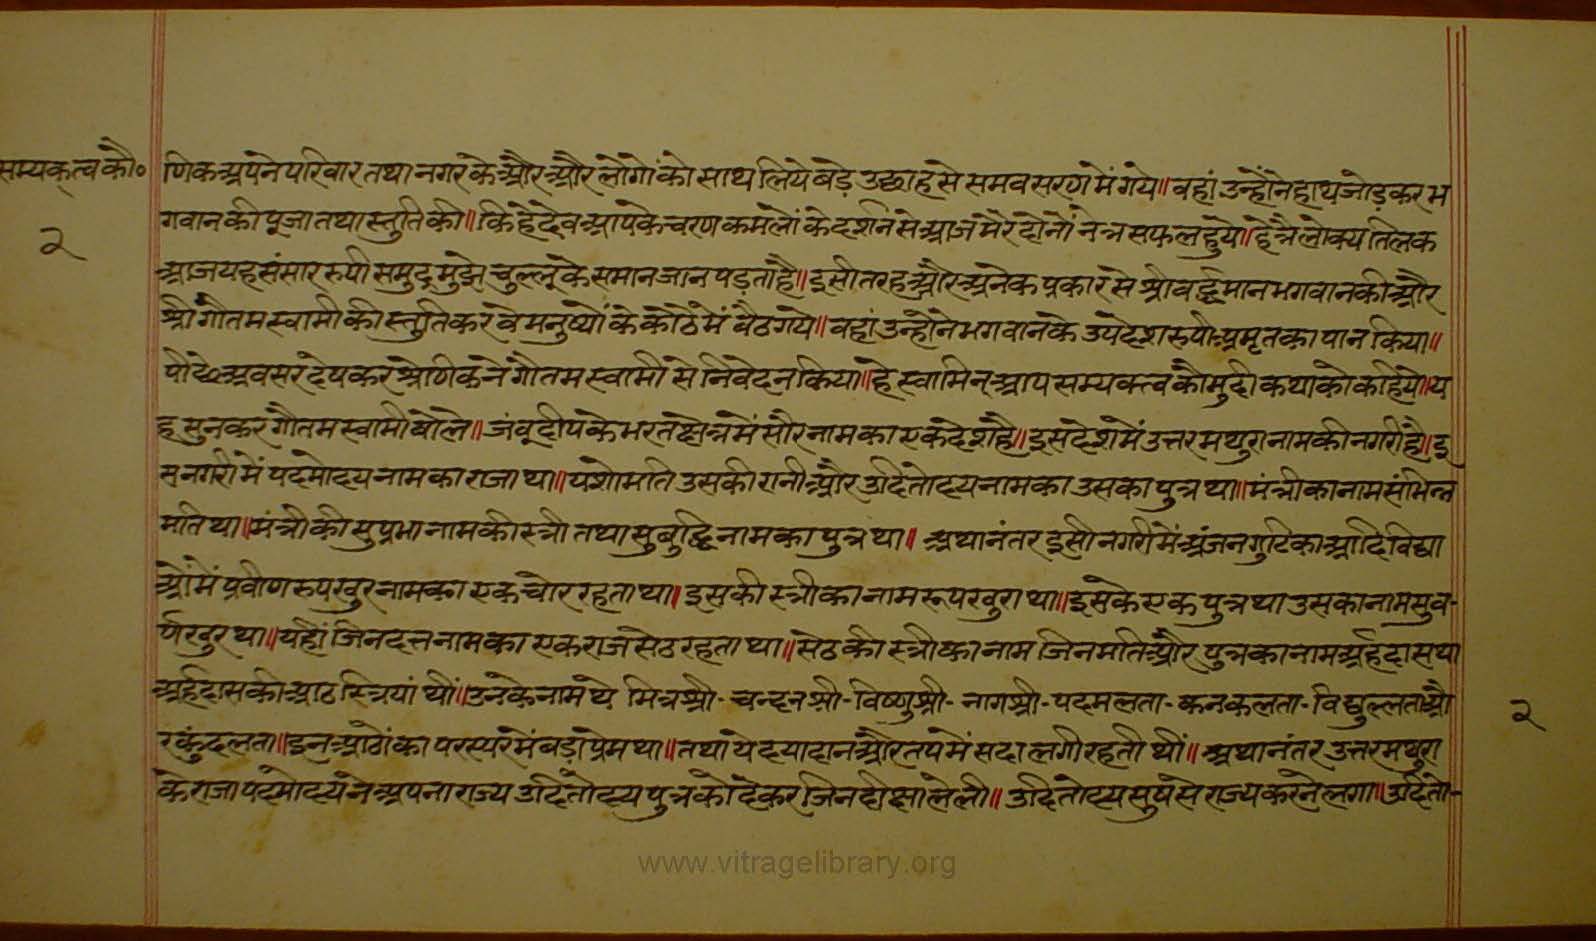 सम्यक्त्व कौ०
२
णिक अपने परिवार तथा नगर के और और लोगों को साथ लिये बड़े उछाह से समवसरण में गये॥ वहां उन्होंने हाथ जोड़कर भ
गवान की पूजा तथा स्तुति की॥ कि हे देव आपके चरण कमलों के दर्शन से आज मेरे दोनों नेत्र सफल हुये॥ हे त्रैलोक्य तिलक
आज यह संसार रूपी समुद्र मुझे चुल्लू के समान जान पड़ता है॥ इसी तरह और अनेक प्रकार से श्री वर्द्धमान भगवान की और
श्री गौतम स्वामी की स्तुति कर वे मनुष्यों के कोठे में बैठ गये॥ वहां उन्होंने भगवान के उपदेश रूपी अमृत का पान किया॥
पीछे अवसर देषकर श्रेणिक ने गौतम स्वामी से निवेदन किया॥ हे स्वामिन् आप सम्यक्त्व कौमुदी कथा को कहिये॥ य
ह सुनकर गौतम स्वामी बोले॥ जंबूदीप के भरत क्षेत्र में सौर नाम का एक देश है॥ इस देश में उत्तर मथुरा नाम की नगरी है॥ इ
स नगरी में पदमोदय नाम का राजा था॥ यशोमति उसकी रानी और उदितोदय नाम का उसका पुत्र था॥ मंत्री का नाम संभिन्न
मति था॥ मंत्री की सुप्रभा नाम की स्त्री तथा सुबुद्धि नाम का पुत्र था॥ अथानंतर इसी नगरी में अंजन गुटिका आदि विद्या
ओं में प्रवीण रूपखुर नाम का एक चोर रहता था। इसकी स्त्री का नाम रूपखुरा था॥ इसके एक पुत्र था उसका नाम सुव-
र्णखुर था॥ यहीं जिनदत्त नाम का एक राजसेठ रहता था॥ सेठ की स्त्री का नाम जिनमति और पुत्र का नाम अर्हदास था
अर्हदास की आठ स्त्रियां थीं॥ उनके नाम थे मित्रश्री - चन्दनश्री - विष्णुश्री - नागश्री - पदमलता - कनकलता - विद्युल्लता औ
र कुंदलता॥ इन आठों का परस्पर में बड़ा प्रेम था॥ तथा ये दया दान और तप में सदा लगी रहती थीं॥ अथानंतर उत्तर मथुरा
के राजा पदमोदय ने अपना राज्य उदितोदय पुत्र को देकर जिन दीक्षा ले ली॥ उदितोदय सुष से राज्य करने लगा॥ उदितो-
२
www.vitragelibrary.org